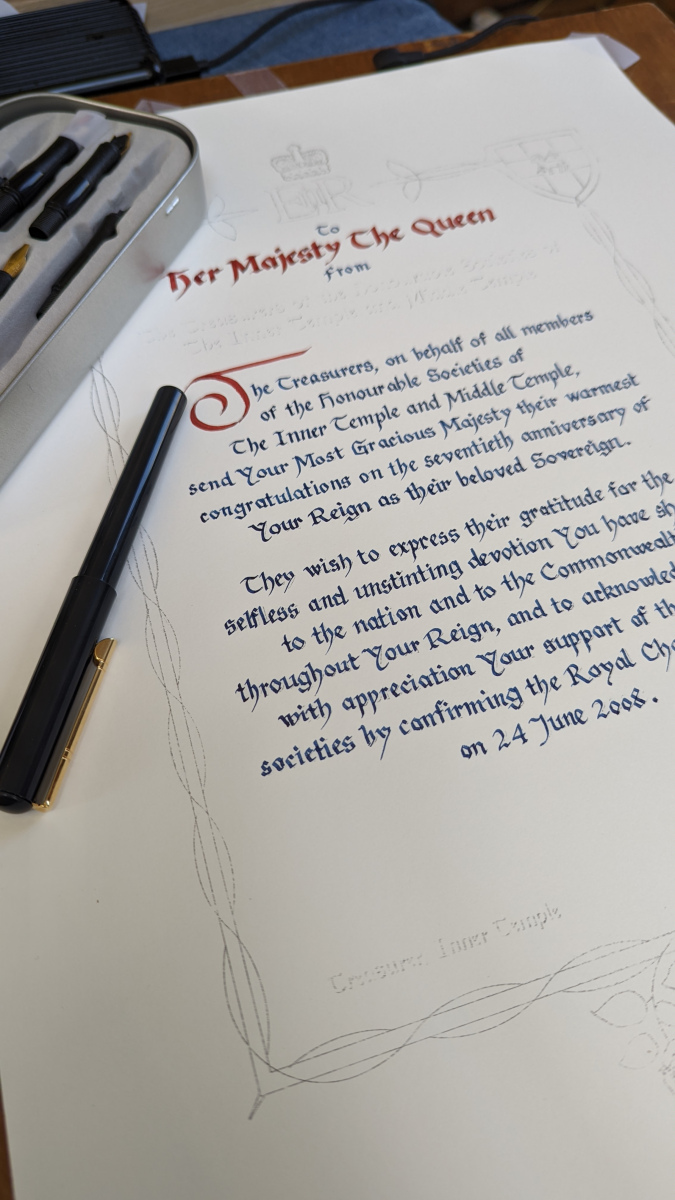 EIIR
To
Her Majesty The Queen
From
The Treasurers of the Honourable Societies of
The Inner Temple and Middle Temple
The Treasurers, on behalf of all members
of the Honourable Societies of
The Inner Temple and Middle Temple,
send Your Most Gracious Majesty their warmest
congratulations on the seventieth anniversary of
Your Reign as their beloved Sovereign.
They wish to express their gratitude for the
selfless and unstinting devotion You have
to the nation and to the
throughout Your Reign, and to
with appreciation Your support of
societies by confirming the Royal
on 24 June 2008.
Treasurer, Inner Temple